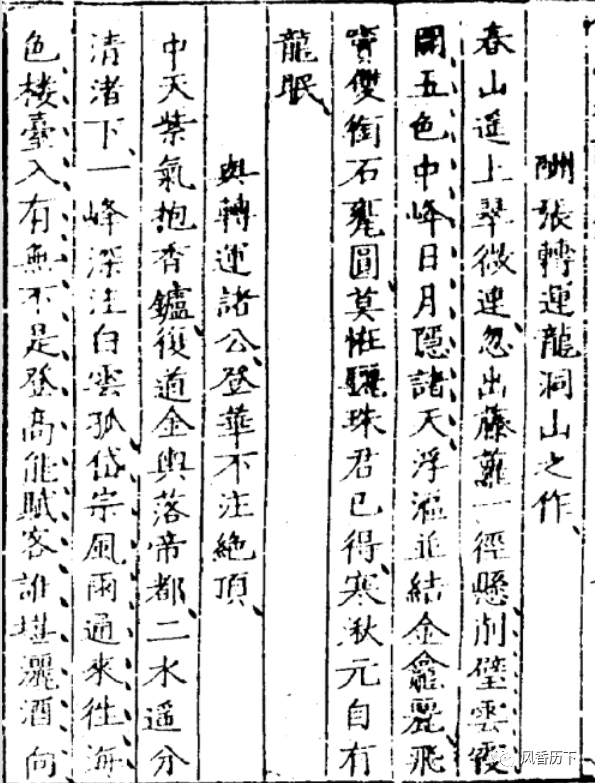 酬張轉運龍洞山之作
春山遥上翠微連忽出藤蘿一徑懸削壁雲霞
開五色中峰日月隱諸天浮漚並結金龕麗飛
竇雙銜石甕圓莫恠驪珠君已得寒湫元自有
龍眠
與轉運諸公登華不注絶頂
中天紫氣抱香鑪復道金輿落帝都二水遥分
清渚下一峰深注白雲孤岱宗風雨通來往海
色楼臺入有無不是登高能賦客誰堪灑酒向
风香历下